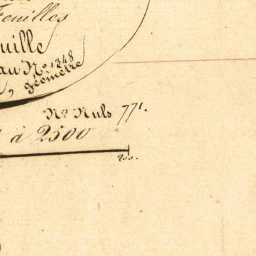 Feuilles
uille
au N° 1248
géomètre
N° Nuls 771.
à 2500